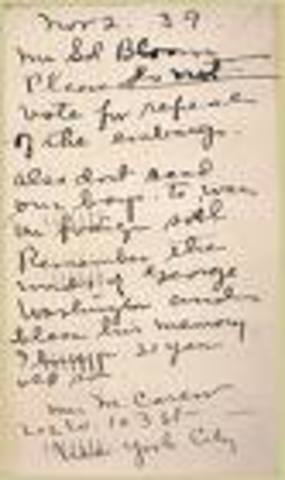 Nov 2. 39.
Mr Sol Bloom
Please do not
vote for repeal
of the embargo.
also dont send
our boys to war
on foreign soil
Remember the
words of George
Washington and
bless his memory
20 years
old
Mrs M. Carew
103 St
New York City